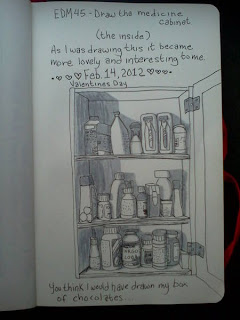 EDM 45 - Draw the medicine
cabinet
(the inside)
As I was drawing this it became
more lovely and interesting to me.
Feb. 14, 2012
Valentines Day
You think I would have drawn my box
of chocolates...